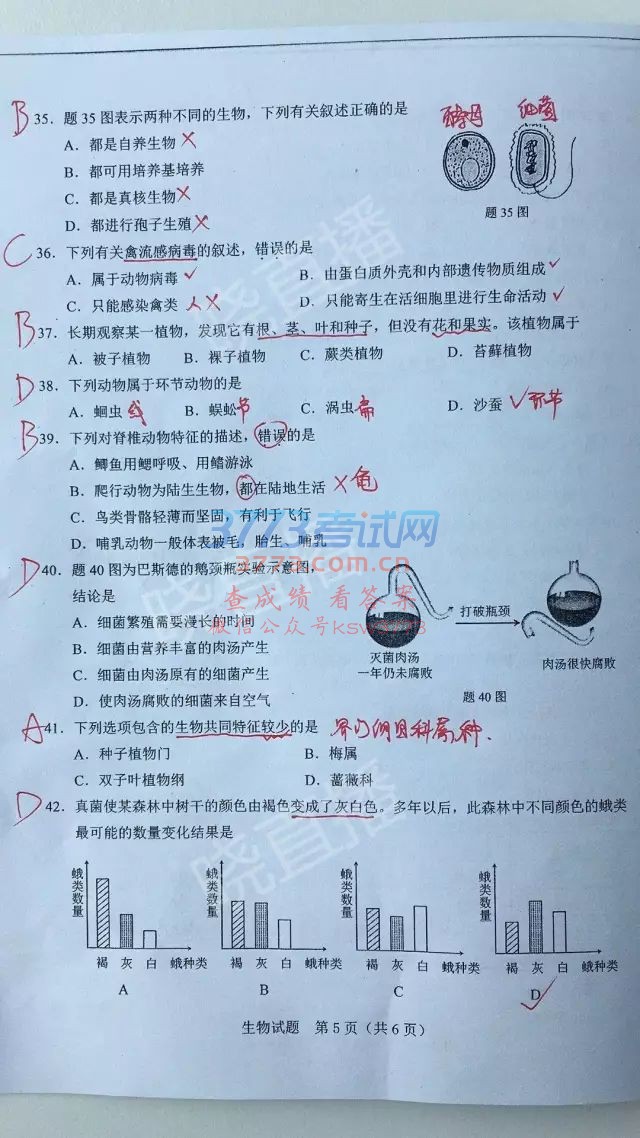 B 35．题 35 图表示两种不同的生物，下列有关叙述正确的是
酵母 细菌
A．都是自养生物 ×
B．都可用培养基培养
C．都是真核生物 ×
D．都进行孢子生殖 ×
题 35 图
C 36．下列有关禽流感病毒的叙述，错误的是
A．属于动物病毒 ✓ B．由蛋白质外壳和内部遗传物质组成 ✓
C．只能感染禽类 人 × D．只能寄生在活细胞里进行生命活动 ✓
B 37．长期观察某一植物，发现它有根、茎、叶和种子，但没有花和果实。该植物属于
A．被子植物 B．裸子植物 C．蕨类植物 D．苔藓植物
D 38．下列动物属于环节动物的是
A．蛔虫 线 B．蜈蚣 节 C．涡虫 扁 D．沙蚕 ✓ 环节
B 39．下列对脊椎动物特征的描述，错误的是
A．鲫鱼用鳃呼吸、用鳍游泳
B．爬行动物为陆生生物，都在陆地生活 × 龟
C．鸟类骨骼轻薄而坚固，有利于飞行
D．哺乳动物一般体表被毛，胎生、哺乳
D 40．题 40 图为巴斯德的鹅颈瓶实验示意图，
结论是
A．细菌繁殖需要漫长的时间
B．细菌由营养丰富的肉汤产生
C．细菌由肉汤原有的细菌产生
D．使肉汤腐败的细菌来自空气
打破瓶颈
灭菌肉汤
一年仍未腐败
肉汤很快腐败
题 40 图
A 41．下列选项包含的生物共同特征较少的是 界门纲目科属种．
A．种子植物门 B．梅属
C．双子叶植物纲 D．蔷薇科
D 42．真菌使某森林中树干的颜色由褐色变成了灰白色。多年以后，此森林中不同颜色的蛾类
最可能的数量变化结果是
蛾类数量 蛾类数量 蛾类数量 蛾类数量
褐 灰 白 蛾种类 褐 灰 白 蛾种类 褐 灰 白 蛾种类 褐 灰 白 蛾种类
A B C D ✓
生物试题 第 5 页（共 6 页）
晓直播
3773考试网
3773.com.cn
查成绩 看答案
晓直播